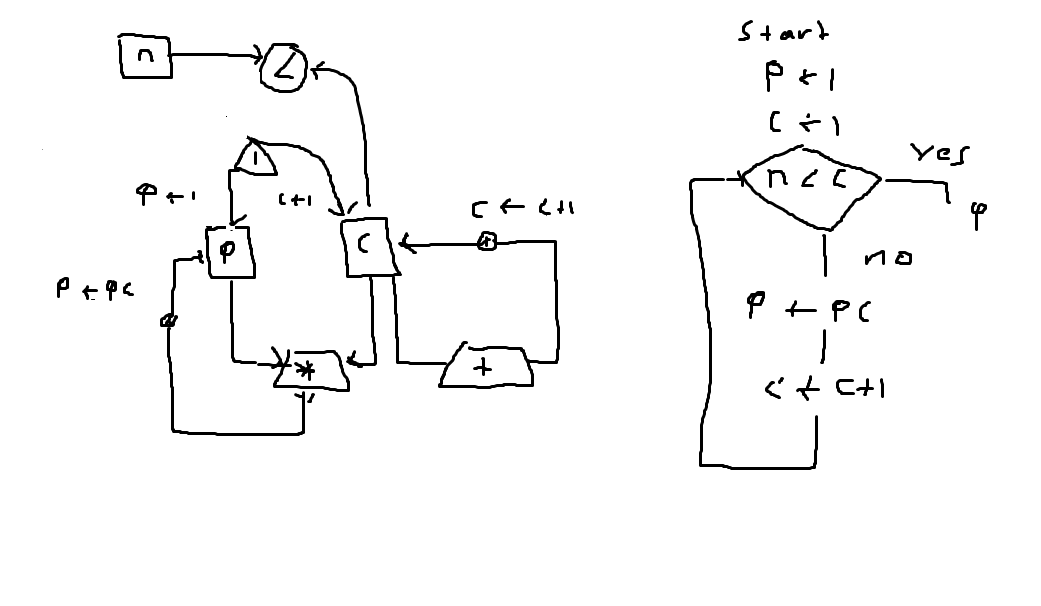 n
<
1
P ← 1
C ← 1
P
C
C ← C+1
P ← PC
*
+
Start
P ← 1
C ← 1
n < C
Yes
P
no
P ← PC
C ← C+1